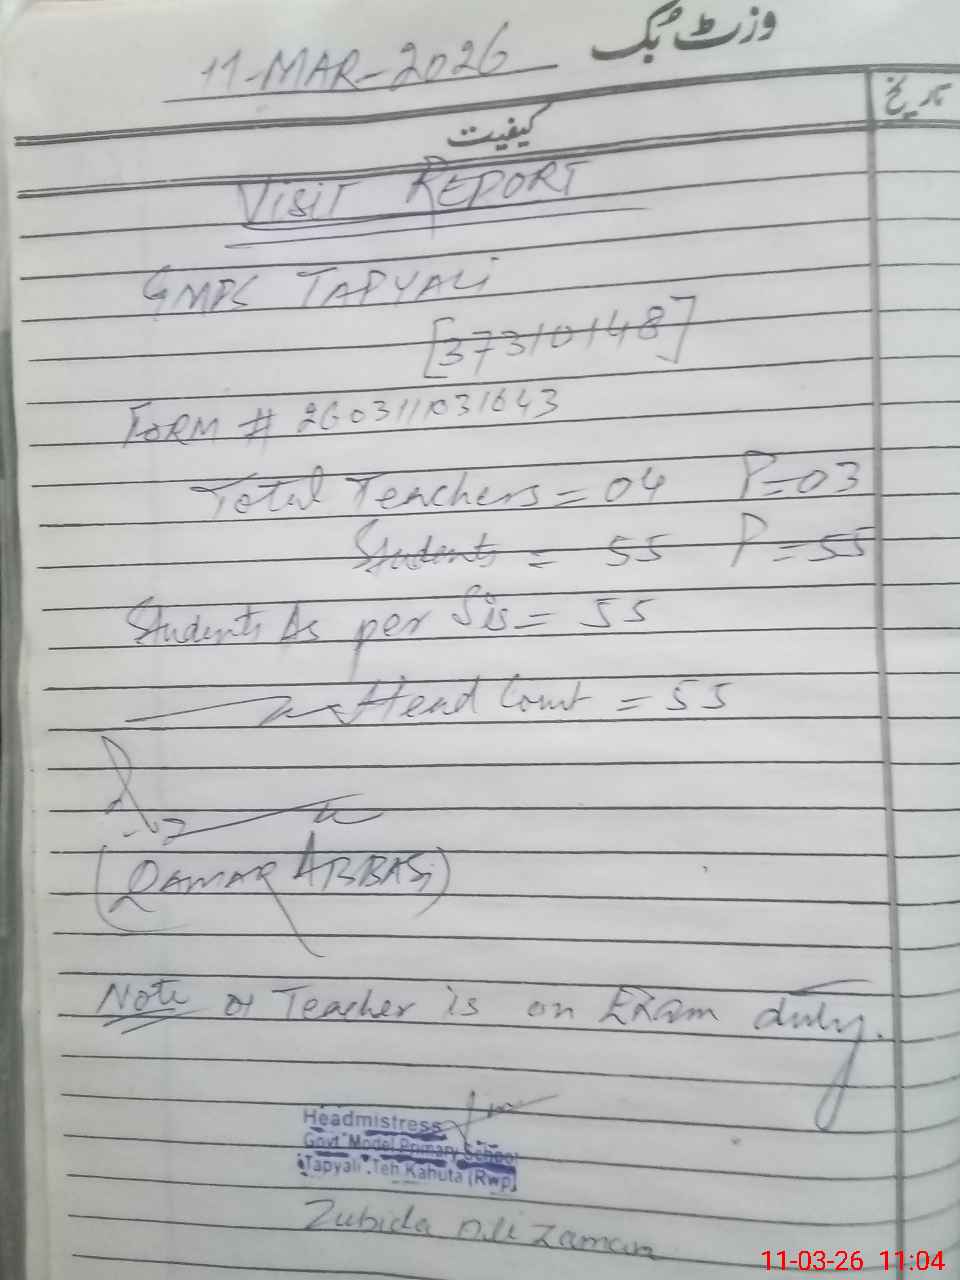 وزٹ بک
11-MAR-2026
تاریخ
کیفیت
VISIT REPORT
GMPS TAPYALI
[37310148]
FORM # 260311031643
Total Teachers = 04 P=03
Students = 55 P=55
Students As per Sis = 55
Head Count = 55
(QAMAR ABBASi)
Note 01 Teacher is on Exam duty.
Headmistress
Govt Model Primary School
Tapyali Teh Kahuta (Rwp)
Zubida
11-03-26 11:04